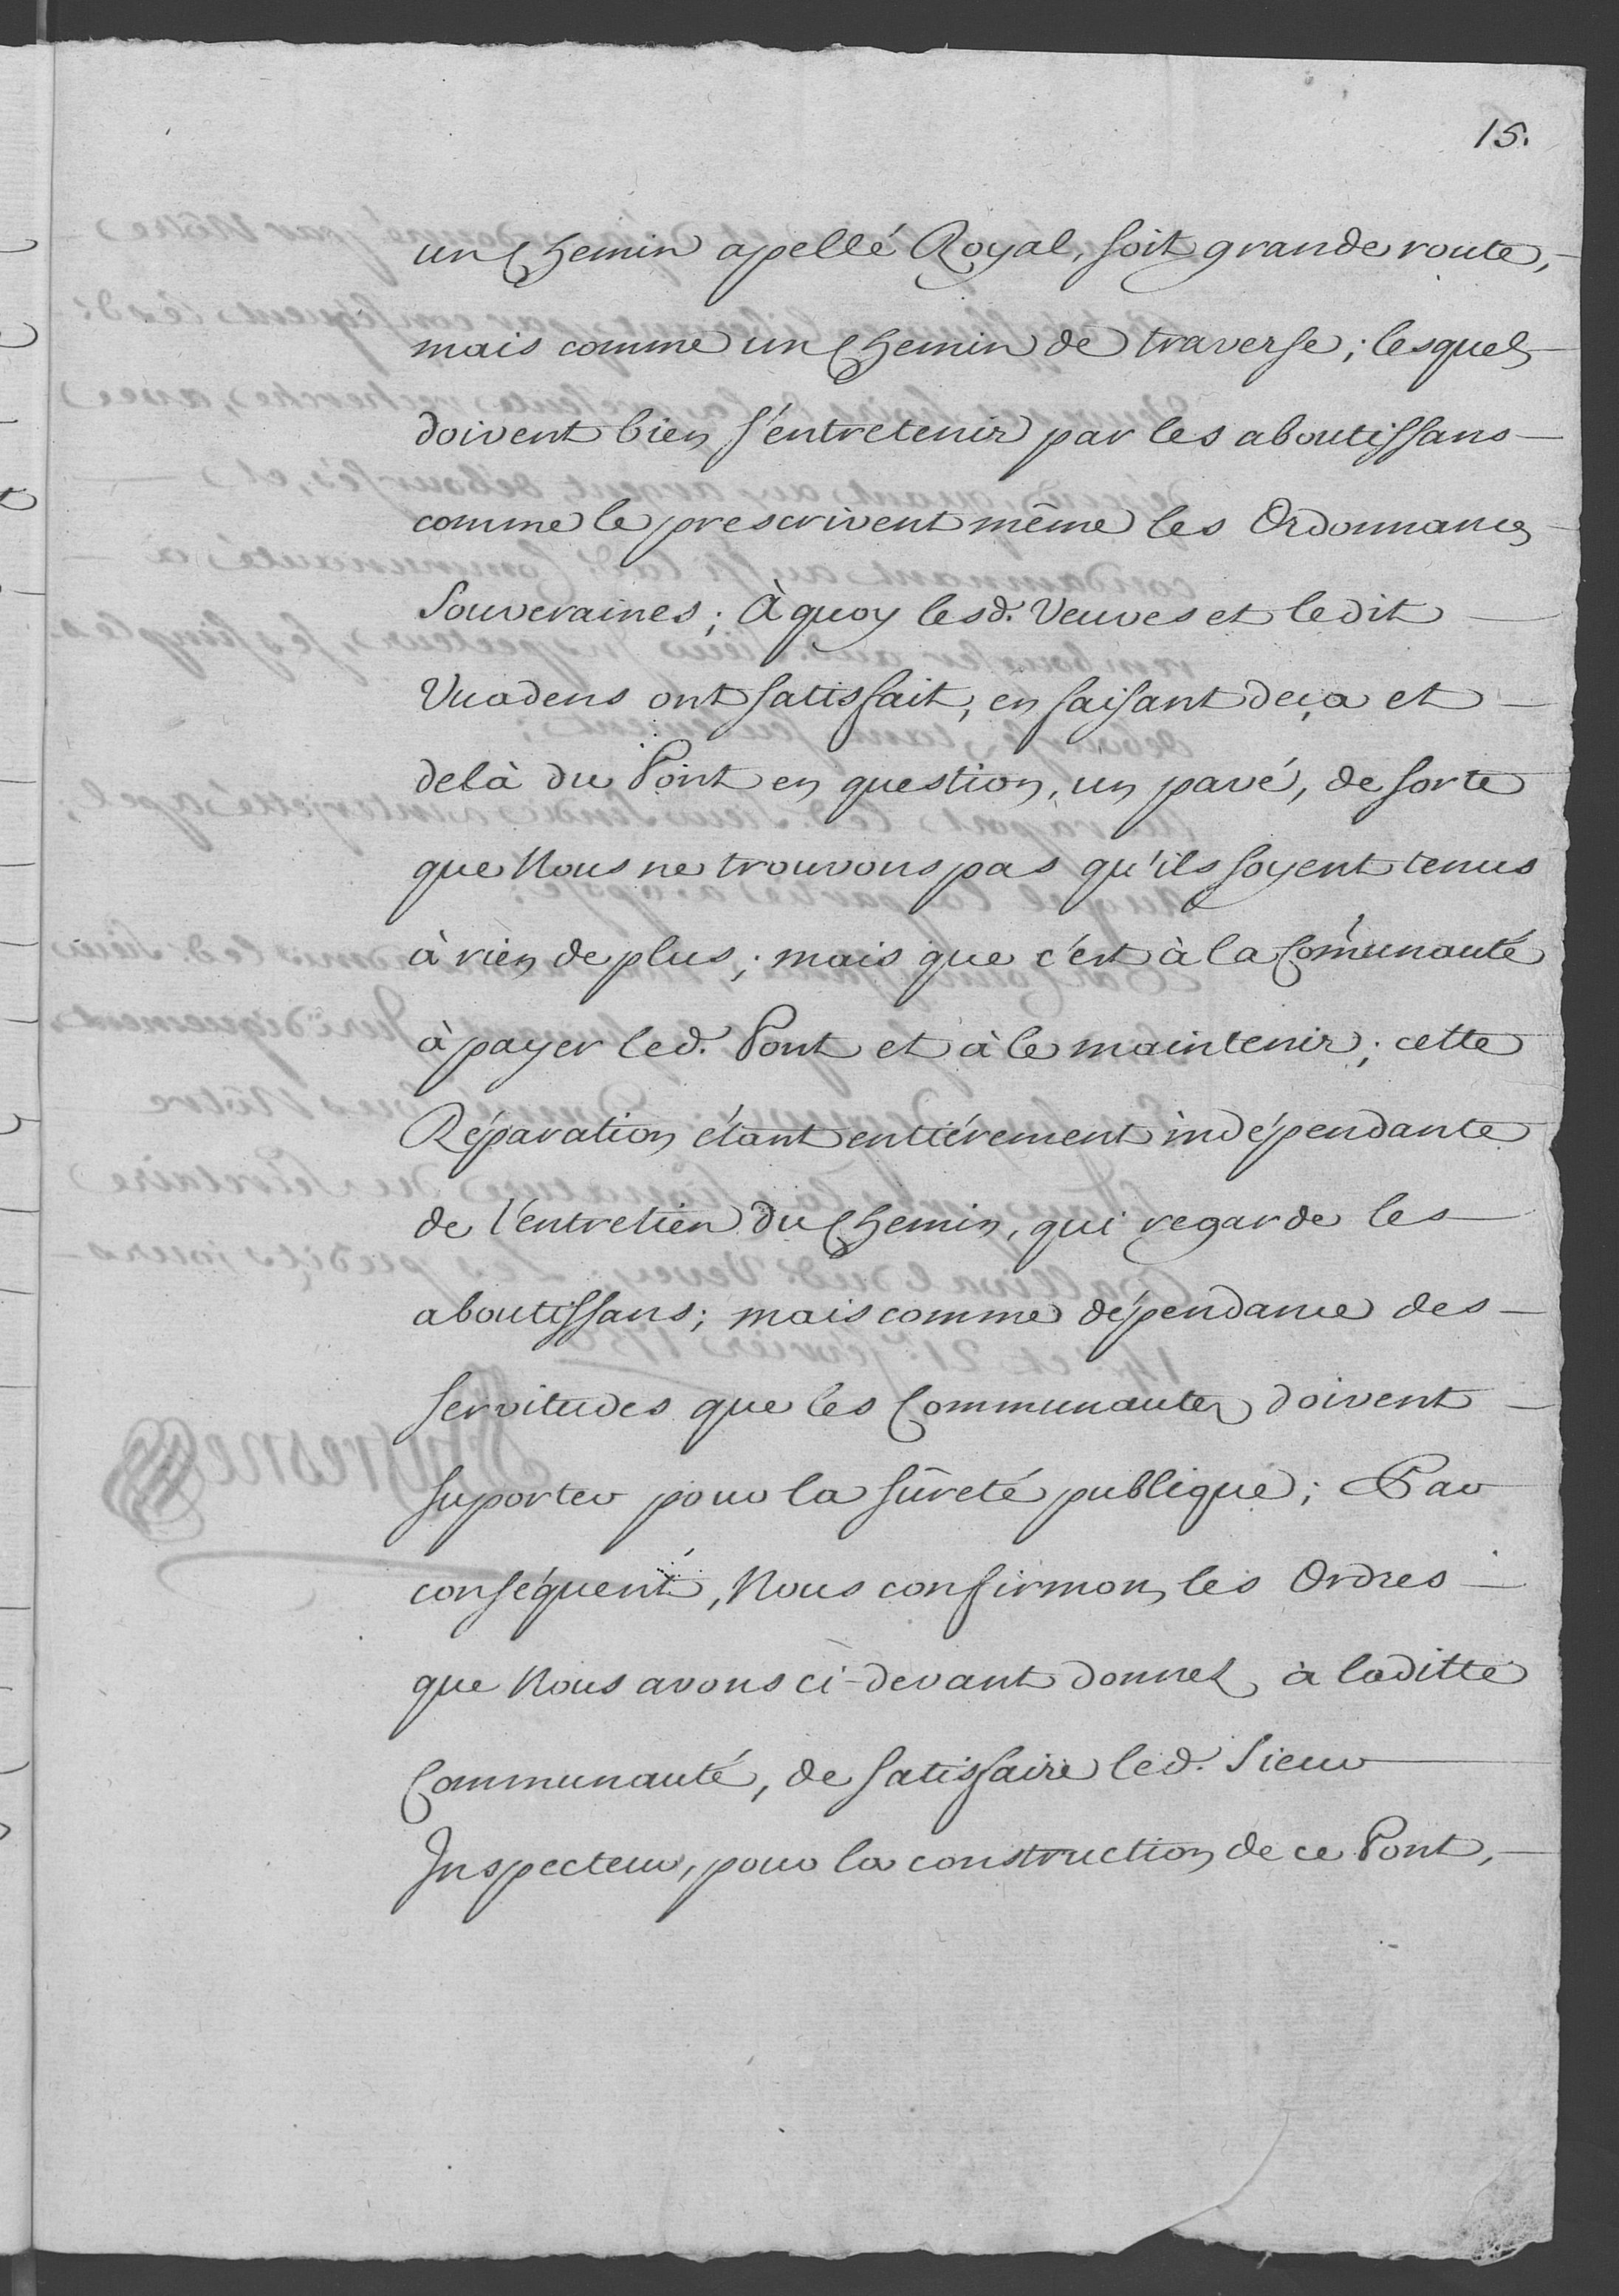 15.
un Chemin apellé Royal, soit grande route,
mais comme un Chemin de traverse; lesquels
doivent bien s'entretenir par les aboutissans
comme le prescrivent même les Ordonnances
Souveraines; À quoy lesd. Veuves et ledit
Vuadens ont satisfait, en faisant deça et
delà du Pont en question, un pavé, de sorte
que Nous ne trouvons pas qu'ils soyent tenus
à rien de plus; mais que c'est à la Comunauté
à payer led. Pont et à le maintenir; cette
Réparation étant entiérement indépendante
de l'entretien du Chemin, qui regarde les
aboutissans; mais comme dépendance des
servitudes que les Communautez doivent
suporter pour la sûreté publique; Par
conséquent, Nous confirmons les Ordres
que Nous avons ci-devant donnez à laditte
Communauté, de satisfaire led. Sieur
Inspecteur, pour la construction de ce Pont,